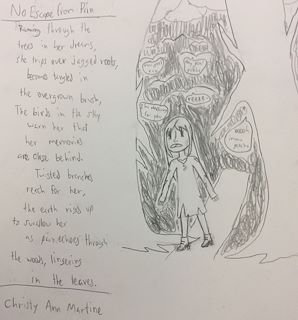 No Escape From Pain
Running through the
trees in her dreams,
she trips over jagged roots,
becomes tangled in
the overgrown brush,
The birds in the sky
warn her that
her memories
are close behind.
Twisted branches
reach for her,
the earth rises up
to swallow her
as pain echoes through
the woods, lingering
in the leaves.
Christy Ann Martine